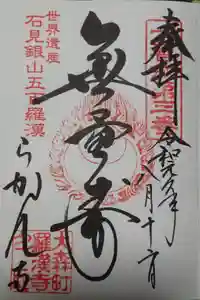 奉拝
令和元年八月十一日
無量寿
世界遺産
石見銀山五百羅漢
らかん寺
大森町
羅漢寺